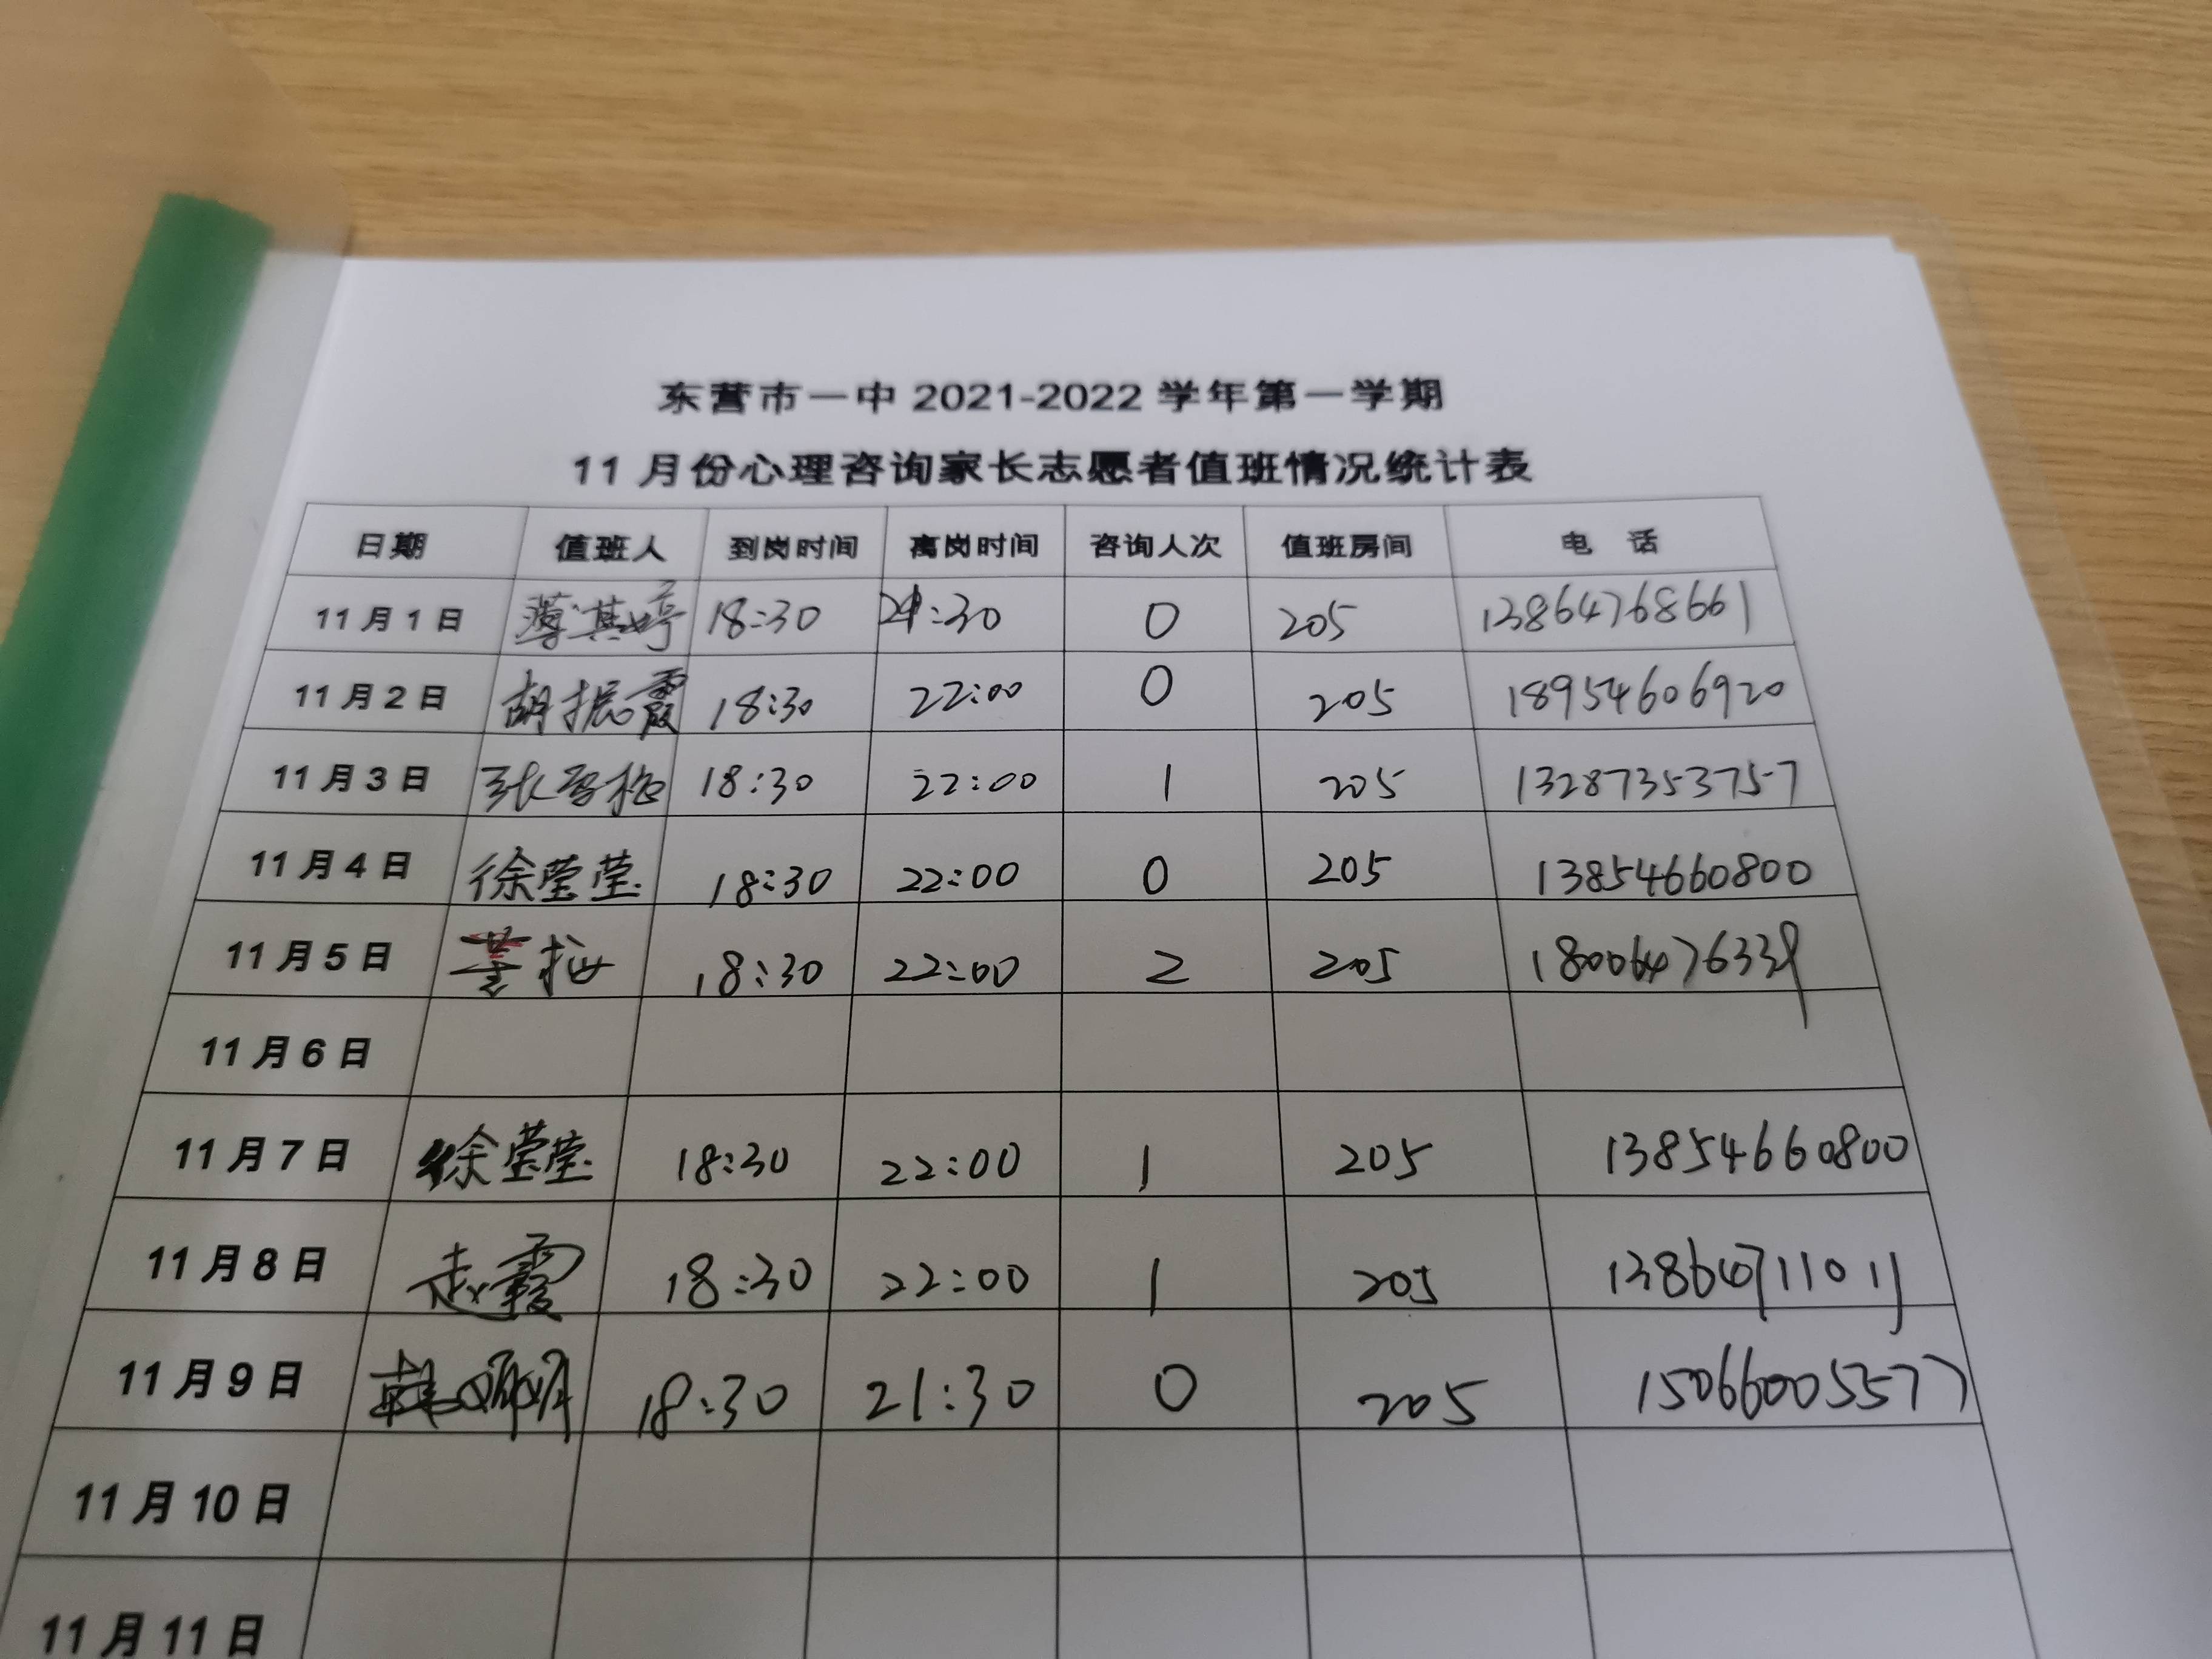 东营市一中 2021-2022 学年第一学期
11 月份心理咨询家长志愿者值班情况统计表
日期 值班人 到岗时间 离岗时间 咨询人次 值班房间 电 话
11 月 1 日 薄其婷 18:30 21:30 0 205 13864768661
11 月 2 日 胡振霞 18:30 22:00 0 205 18954606920
11 月 3 日 张雪梅 18:30 22:00 1 205 13287353757
11 月 4 日 徐莹莹 18:30 22:00 0 205 13854660800
11 月 5 日 18:30 22:00 2 205 18006476339
11 月 6 日
11 月 7 日 徐莹莹 18:30 22:00 1 205 13854660800
11 月 8 日 赵霞 18:30 22:00 1 205 13864711011
11 月 9 日 18:30 21:30 0 205 15066005577
11 月 10 日
11 月 11 日